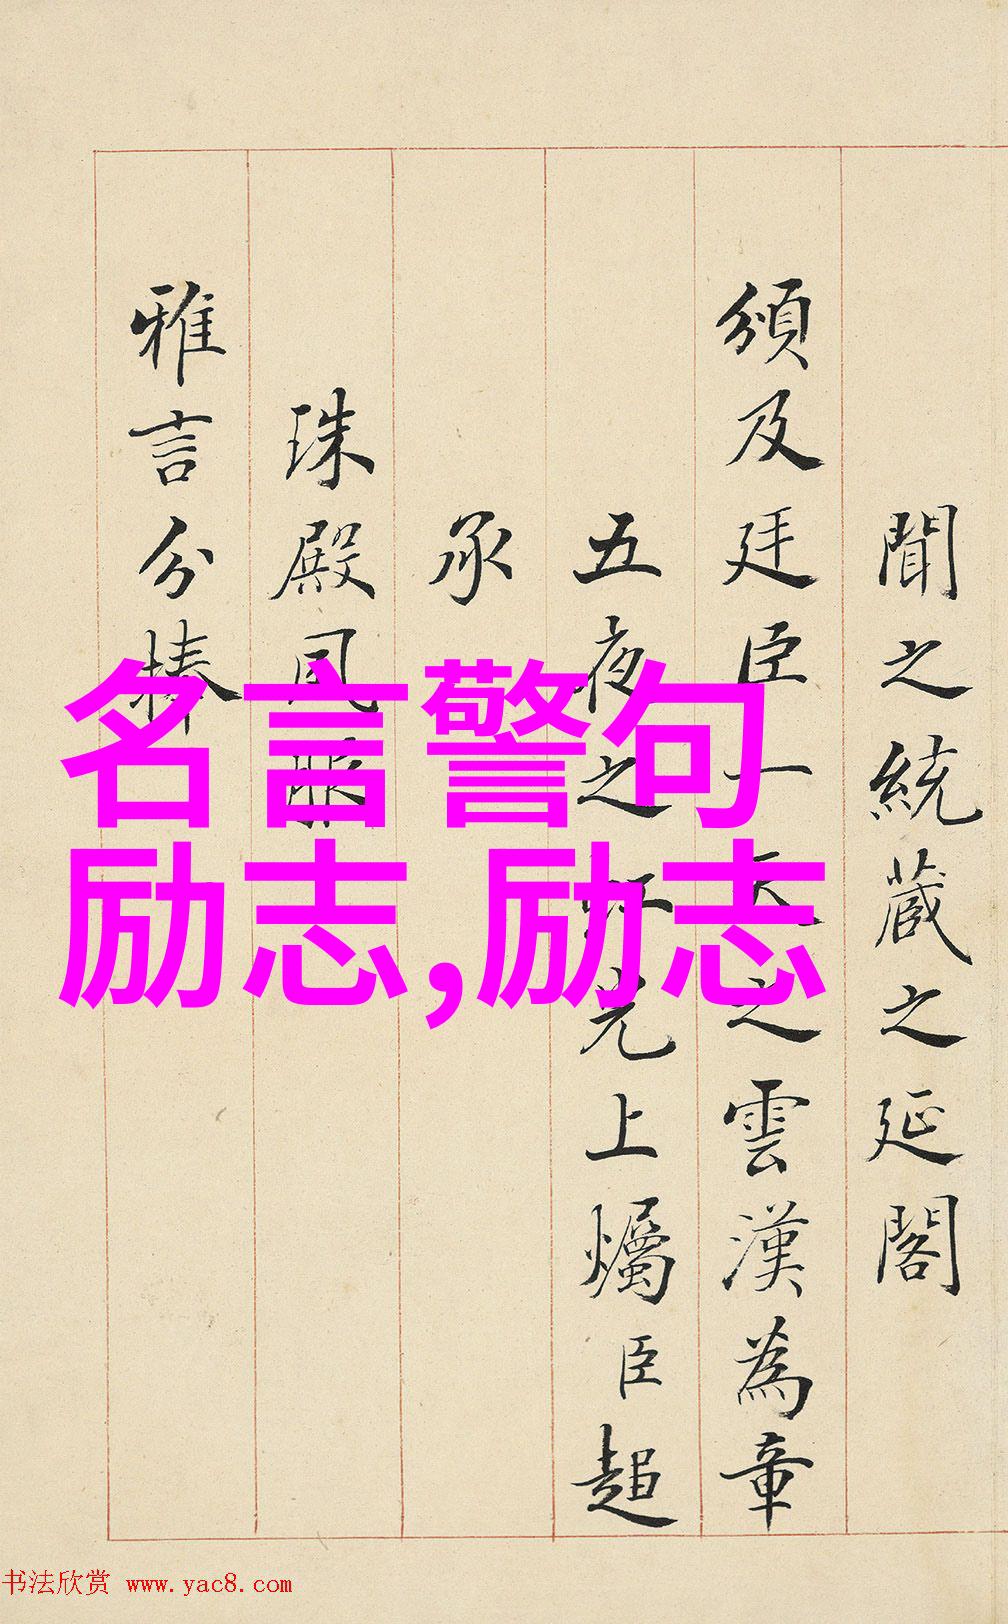 聞之統蔵之延閣
頒及廷臣一天之雲漢為章
五夜之虹光上爥臣超
承
珠殿同
雅言分捧
名言警句
励志,励志
书法欣赏 www.yac8.com